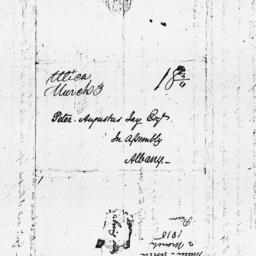 Utica
March 3
18¾
Peter Augustus Jay Esqr
In Assembly
Albany_
2 March
1816
From